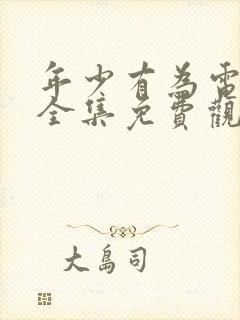 年少有為電
全集免費觀
大島司